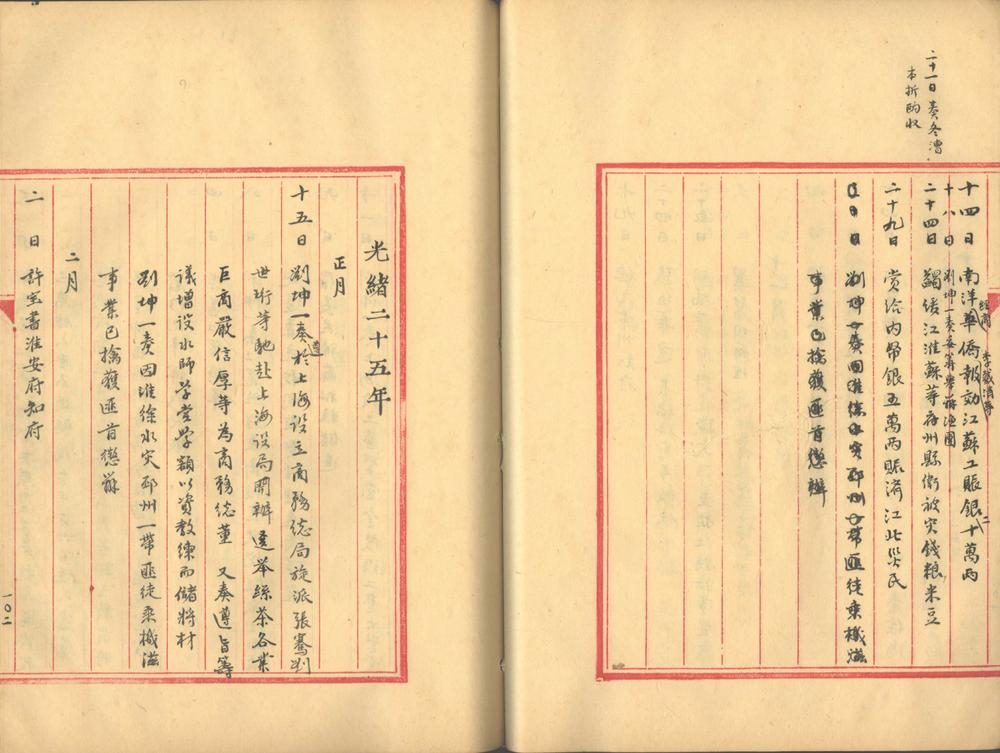 二十一日 奏冬漕
本折酌收
十四日 南洋華僑報効江蘇工賑銀十萬兩
經商
李
二
十八日 劉坤一奏妥籌舉辦漁團
二十四日 蠲緩江淮蘇等府州縣衛被災錢粮米豆
二十九日 賞給内帑銀五萬兩賑濟江北災民
日 劉坤一奏因淮徐水灾邳州一帶匪徒乘機滋
事業已擒獲匪首懲辦
光緒二十五年
正月
十五日 劉坤一奏遵於上海設立商務總局旋派張謇劉
世珩等馳赴上海設局開辦選舉絲茶各業
巨商嚴信厚等為商務總董 又奏遵旨籌
議增設水師學堂學額以資教練而儲將材
劉坤一奏因淮徐水灾邳州一帶匪徒乘機滋
事業已擒獲匪首懲辦
二月
二日 許室書淮安府知府
一〇二